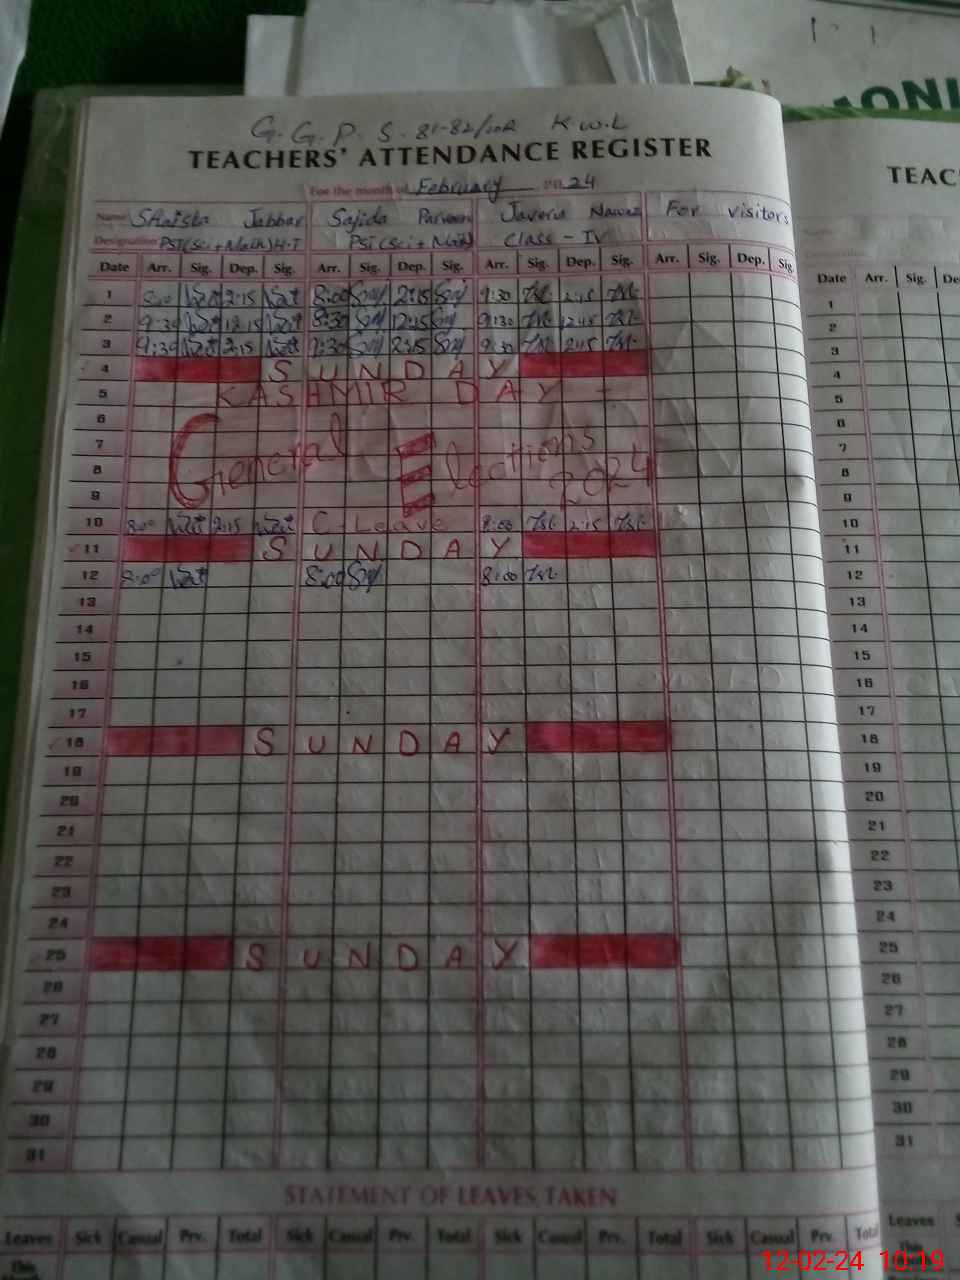 G. G. P. S. 81-82/10R K.W.L
TEACHERS' ATTENDANCE REGISTER
TEAC
For the month of February 2024
Name Shaista Jabbar Sajida Parveen Javeria Nawaz For visitors
Designation PST(Sci+Math)H-T PST(Sci+Math) Class - IV
Date Arr. Sig. Dep. Sig. Arr. Sig. Dep. Sig. Arr. Sig. Dep. Sig. Arr. Sig. Dep. Sig. Date Arr. Sig.
1 8:00 2:15 8:00 2:15 9:30 2:15 1
2 9:30 12:15 8:30 12:15 9:30 12:15 2
3 9:30 2:15 9:30 2:15 9:30 2:15 3
4 SUNDAY 4
5 KASHMIR DAY - 5
6 6
7 General Elections 7
8 2024 8
9 9
10 8:00 2:15 C-Leave 8:00 2:15 10
11 SUNDAY 11
12 8:00 8:00 8:00 12
13 13
14 14
15 15
16 16
17 17
18 SUNDAY 18
19 19
20 20
21 21
22 22
23 23
24 24
25 SUNDAY 25
26 26
27 27
28 28
29 29
30 30
31 31
STATEMENT OF LEAVES TAKEN
Leaves Sick Casual Prv. Total Sick Casual Prv. Total Sick Casual Prv. Total Sick Casual Prv. Total Leaves
This This
12-02-24 10:19